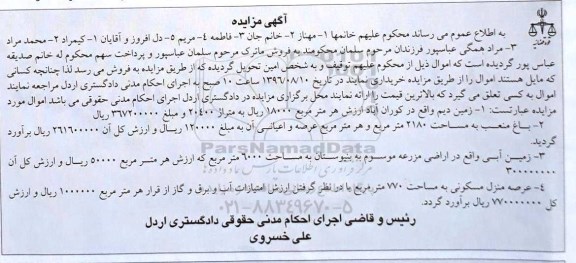 آگهی مزایده
به اطلاع عموم می رساند محکوم علیهم خانمها ۱- مهناز ۲- خانم جان ۳- فاطمه ۴- مریم ۵- دل افروز و آقایان ۱- کیمراد ۲- محمد مراد
۳- مراد همگی عباسپور فرزندان مرحوم سلمان محکومند به فروش ماترک مرحوم سلمان عباسپور و پرداخت سهم محکوم له خانم صدیقه
عباس پور گردیده است که اموال ذیل از محکوم علیهم توقیف و به شخص امین تحویل گردیده که از طریق مزایده به فروش می رسد لذا چنانچه کسانی
که مایل هستند اموال را از طریق مزایده خریداری نمایند در تاریخ ۱۳۹۶/۰۸/۱۰ ساعت ۱۰ صبح به اجرای احکام مدنی دادگستری اردل مراجعه نمایند
اموال به کسی تعلق می گیرد که بالاترین قیمت را ارائه نمایند محل برگزاری مزایده در دادگستری اردل اجرای احکام مدنی حقوقی می باشد اموال مورد
مزایده عبارتست: ۱- زمین دیم واقع در کوران آباد ارزش هر متر مربع ۱۸۰۰۰ ریال به متراژ ۲۰۴۰۰ و مبلغ ۳۶۷۲۰۰۰۰۰ ریال
۲- باغ منعسب به مساحت ۲۱۸۰ متر مربع و هر متر مربع عرصه و اعیانی آن به مبلغ ۱۲۰۰۰۰ ریال و ارزش کل آن ۲۶۱۶۰۰۰۰۰ ریال برآورد
گردید.
۳- زمین آبی واقع در اراضی مزرعه موسوم به بنیوستان به مساحت ۶۰۰۰ متر مربع که ارزش هر متر مربع ۵۰۰۰۰ ریال و ارزش کل آن
۳۰۰۰۰۰۰۰۰
۴- عرصه منزل مسکونی به مساحت ۷۷۰ متر مربع با در نظر گرفتن ارزش امتیازات آب و برق و گاز از قرار هر متر مربع ۱۰۰۰۰۰۰ ریال و ارزش
کل ۷۷۰۰۰۰۰۰۰ ریال برآورد گردد.
رئیس و قاضی اجرای احکام مدنی حقوقی دادگستری اردل
علی خسروی
ParsNamadData
۰۲۱-۸۸۳۴۹۶۷۰-۵